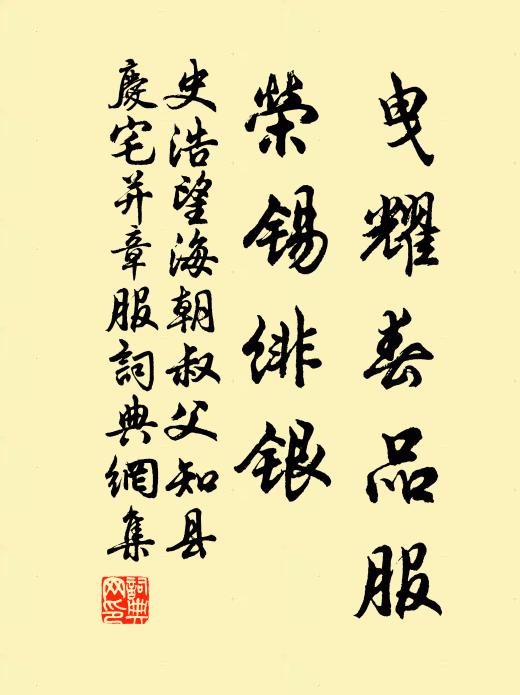 曳耀春品服
榮锡绯银
史浩望海朝叔父知县
慶宅并章服詞典網集
詞典网印